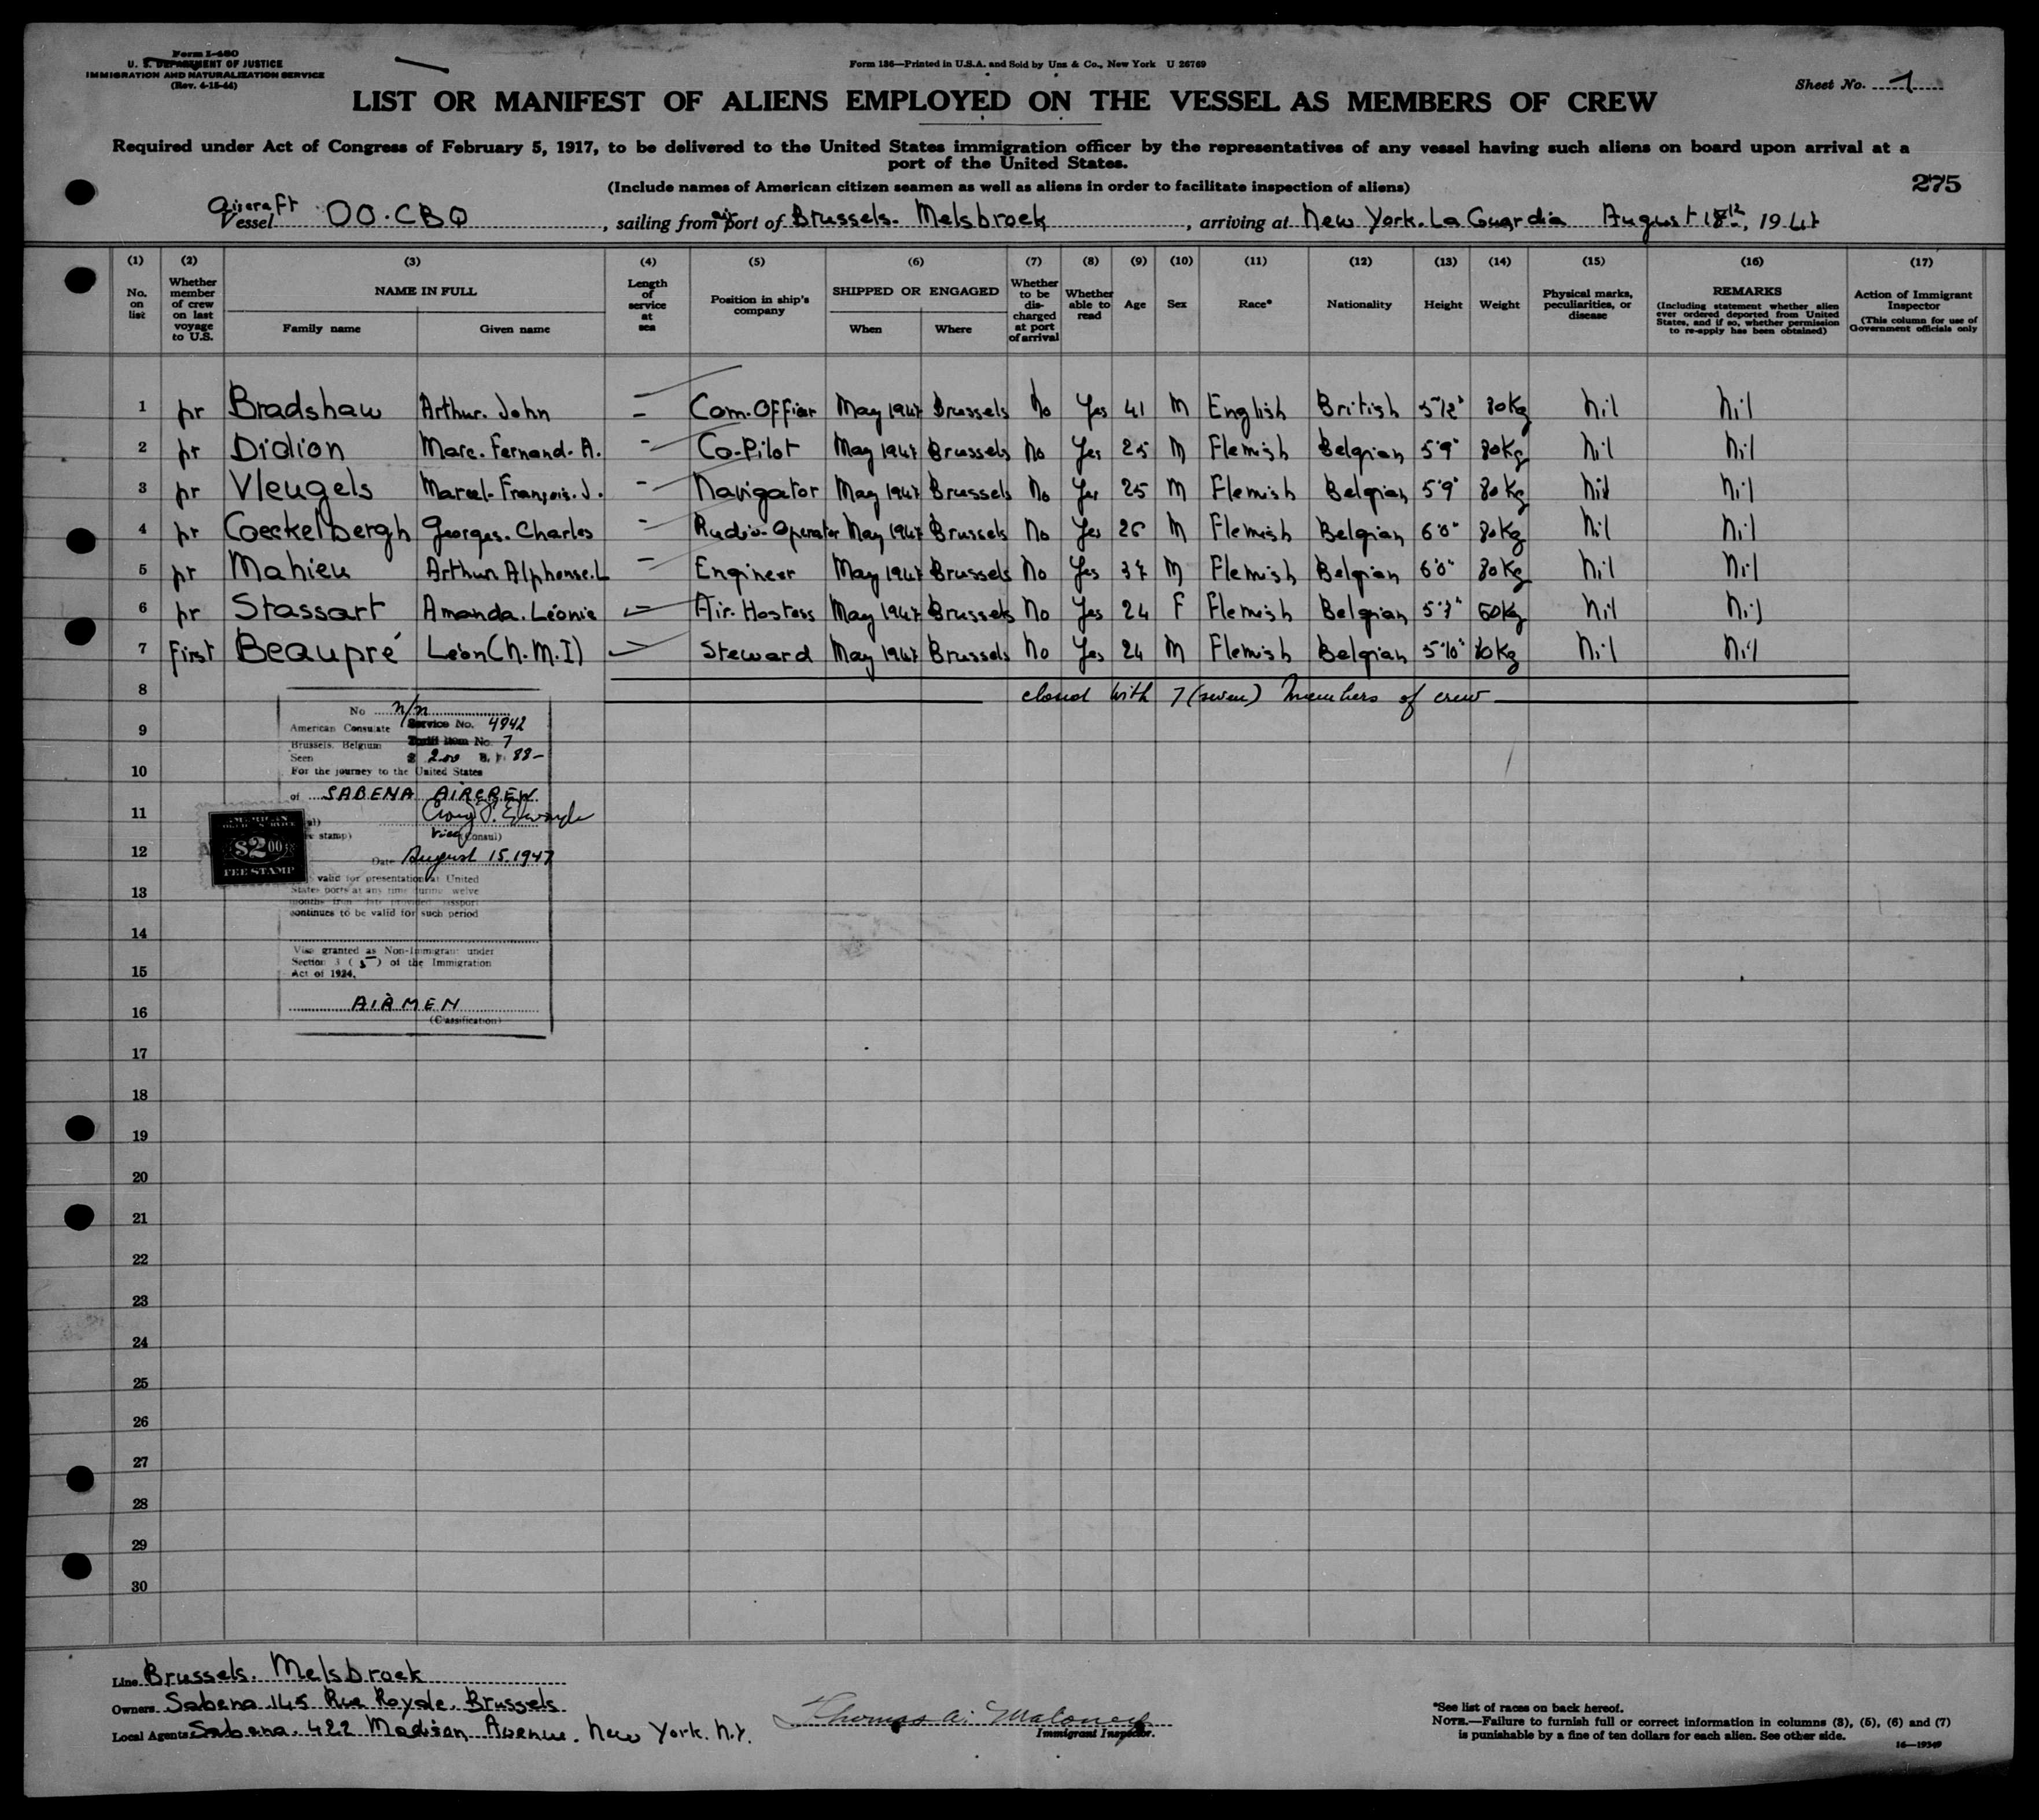 Form I-480
U. S. DEPARTMENT OF JUSTICE
IMMIGRATION AND NATURALIZATION SERVICE
(Rev. 4-15-44)
Form 136—Printed in U.S.A. and Sold by Unz & Co., New York U 26769
Sheet No. 1
LIST OR MANIFEST OF ALIENS EMPLOYED ON THE VESSEL AS MEMBERS OF CREW
Required under Act of Congress of February 5, 1917, to be delivered to the United States immigration officer by the representatives of any vessel having such aliens on board upon arrival at a
port of the United States.
(Include names of American citizen seamen as well as aliens in order to facilitate inspection of aliens)
275
Aircraft
Vessel OO.CBQ, sailing from air port of Brussels. Melsbroek, arriving at New York. La Guardia August 18th, 1947
(1) (2) (3) (4) (5) (6) (7) (8) (9) (10) (11) (12) (13) (14) (15) (16) (17)
No. on list
Whether member of crew on last voyage to U.S.
NAME IN FULL
Family name
Given name
Length of service at sea
Position in ship's company
SHIPPED OR ENGAGED
When
Where
Whether to be discharged at port of arrival
Whether able to read
Age
Sex
Race*
Nationality
Height
Weight
Physical marks, peculiarities, or disease
REMARKS
(Including statement whether alien ever ordered deported from United States, and if so, whether permission to re-apply has been obtained)
Action of Immigrant Inspector
(This column for use of Government officials only
1 pr Bradshaw Arthur. John - Com. Officer May 1947 Brussels No Yes 41 M English British 5'12" 80Kg Nil Nil
2 pr Didion Marc. Fernand. A. - Co-Pilot May 1947 Brussels No Yes 25 M Flemish Belgian 5'9" 80Kg Nil Nil
3 pr Vleugels Marcel. François. J. - Navigator May 1947 Brussels No Yes 25 M Flemish Belgian 5'9" 80Kg Nil Nil
4 pr Coeckelbergh Georges. Charles - Radio-Operator May 1947 Brussels No Yes 26 M Flemish Belgian 6'0" 80Kg Nil Nil
5 pr Mahieu Arthur Alphonse. L - Engineer May 1947 Brussels No Yes 37 M Flemish Belgian 6'0" 80Kg Nil Nil
6 pr Stassart Amanda. Léonie - Air. Hostess May 1947 Brussels No Yes 24 F Flemish Belgian 5'7" 60Kg Nil Nil
7 First Beaupré Léon (N.M.I) - Steward May 1947 Brussels No Yes 24 M Flemish Belgian 5'10" 80Kg Nil Nil
8 closed with 7 (seven) members of crew
9
10
11
12
13
14
15
16
17
18
19
20
21
22
23
24
25
26
27
28
29
30
No n/n
American Consulate Service No. 4942
Brussels, Belgium Tariff Item No. 7
Seen $ 2.00 B. F. 88-
For the journey to the United States
of SABENA AIRCREW
stamp) Vice (Consul)
AMERICAN
$2.00
FEE STAMP
Date August 15. 1947
valid for presentation at United
States ports at any time during twelve
months from date provided passport
continues to be valid for such period
Visa granted as Non-Immigrant under
Section 3 (5) of the Immigration
Act of 1924.
AIRMEN
(Classification)
Line Brussels. Melsbroek
Owners Sabena 145 Rue Royale. Brussels
Local Agents Sabena. 422 Madison Avenue. New York. N.Y.
Thomas A. Maloney
Immigrant Inspector.
*See list of races on back hereof.
NOTE.—Failure to furnish full or correct information in columns (3), (5), (6) and (7)
is punishable by a fine of ten dollars for each alien. See other side.
16—19349